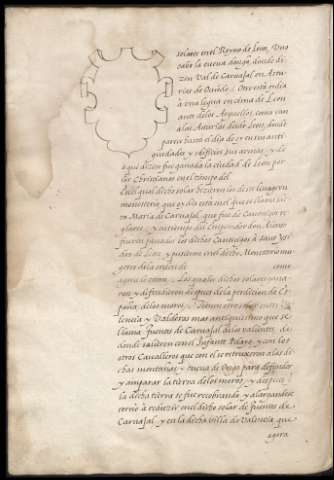 solares en el Reyno de Leon, Uno
cabo la cueva donga, donde di
zen Val de Carvajal en Astu
rias de Oviedo. Otro está media
a una legua encima de Leon
antes delos Arguellos, como van
a las Asturias desde Leon, donde
parece hasta el dia de oy en sus anti
guedades y edificios sus armas, y de
aqui dizen fue ganada la ciudad de Leon por
los Christianos en el tiempo del
Enel qual dicho solar hizieron los de su linage un
monesterio que oy dia está en el que se llama sancta
Maria de Carvajal, que fue de Canonigos re
glares, y en tiempo del Emperador don Alonso
fueron passados los dichos Canonigos a Sant Ysi
dro de Leon, y pusieron en el dicho Monesterio mu
geres dela orden de como
agora lo estan. Los quales dichos solares gana
ron, y defendieron despues de la perdicion de Es
paña delos moros. Tienen otro solar entre Va
lencia y Valderas mas antiguo que se
llama fuentes de Carvajal delos valientes, de
donde salieron con el Infante Pelayo, y con los
otros Cavalleros que con el se retruxeron a las di
chas montañas y cueva de Onga para defender
y amparar la tierra delos moros, y despues
la dicha tierra se fue recobrando y alargandose
torno a reduzir en el dicho solar de fuentes de
Carvajal, y en la dicha villa de Valencia que
agora